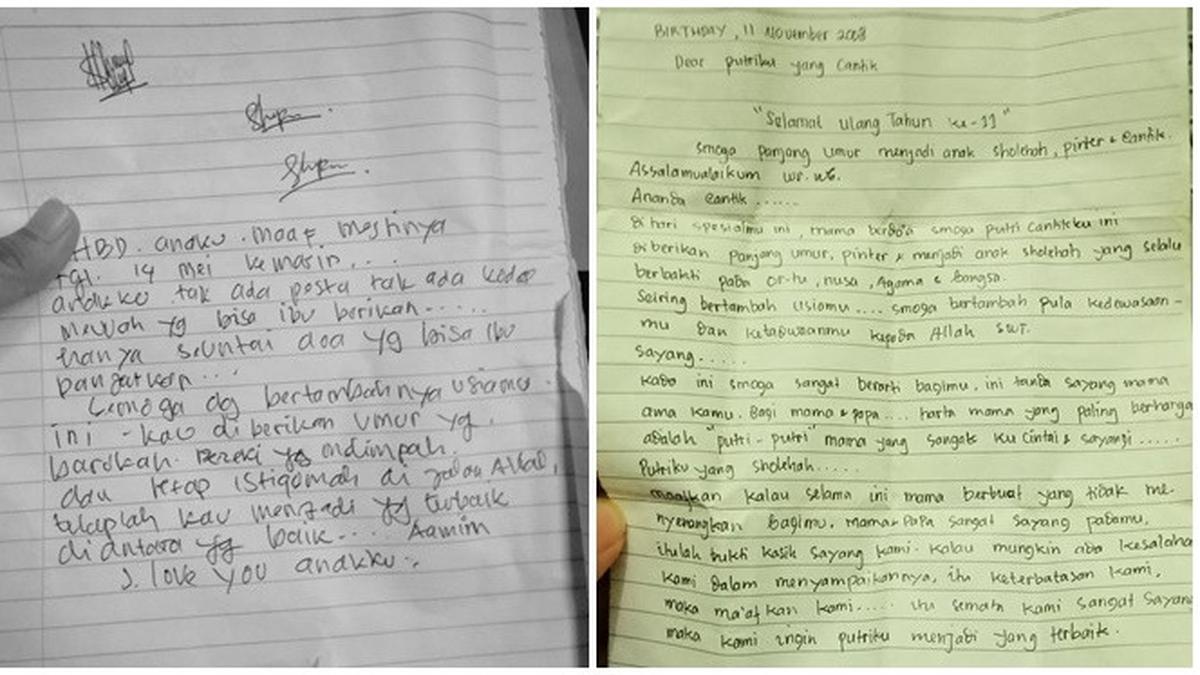 HBD. anakku. maaf mestinya
tgl. 14 mei kemarin...
anakku tak ada pesta tak ada kado
mewah yg bisa ibu berikan......
hanya seuntai doa yg bisa ibu
panjatkan...
Semoga dg bertambahnya usiamu
ini - kau diberikan umur yg.
barokah. Rezeki yg melimpah.
dan tetap istiqomah di jalan Allah,
tetaplah kau menjadi yg terbaik
diantara yg baik.... Aamiin
I. love you anakku..
BIRTHDAY, 11 November 2008
Dear putriku yang Cantik
"Selamat Ulang Tahun ke-11"
smoga panjang umur menjadi anak sholehah, pinter & Cantik.
Assalamualaikum wr. wb.
Ananda Cantik......
di hari spesialmu ini, mama berdo'a smoga putri cantikku ini
diberikan panjang umur, pinter & menjadi anak sholehah yang selalu
berbakti pada or-tu, nusa, Agama & bangsa.
Seiring bertambah usiamu.... smoga bertambah pula kedewasaan-
mu dan ketaqwaanmu kepada Allah SWT.
Sayang.....
Kado ini smoga sangat berarti bagimu, ini tanda sayang mama
ama kamu. Bagi mama & papa.... harta mama yang paling berharga
adalah "putri-putri" mama yang sangat ku Cintai & sayangi.....
Putriku yang sholehah.....
maafkan kalau selama ini mama berbuat yang tidak me-
nyenangkan bagimu. mama & papa sangat sayang padamu.
itulah bukti kasih sayang kami. kalau mungkin ada kesalaha
kami dalam menyampaikannya, itu keterbatasan kami,
maka ma'afkan kami..... itu semata kami sangat sayang
maka kami ingin putriku menjadi yang terbaik.